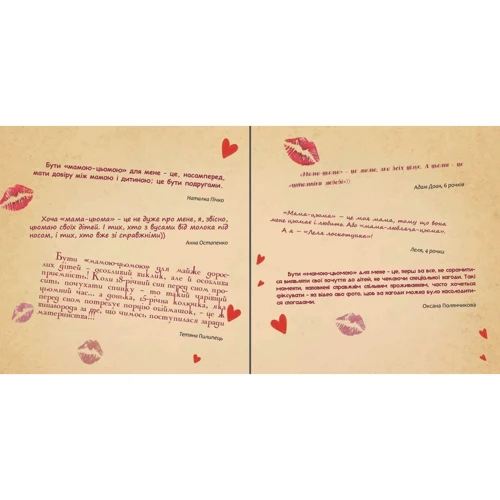 Бути «мамою-цьомою» для мене - це, насамперед,
мати довіру між мамою і дитиною; це бути подругами.
Наталка Пічко
Хоча «мама-цьома» - це не дуже про мене, я, звісно,
цьомаю своїх дітей. І тих, хто з вусами від молока під
носом, і тих, хто вже зі справжніми))
Анна Остапенко
Бути «мамою-цьомою» для майже дорос-
лих дітей – особливий виклик, але й особлива
приємність! Коли 18-річний син перед сном про-
сить почухати спинку – то такий чарівний
цьомний час... а донька, 15-річна колючка, яка
перед сном потребує порцію обіймашок, - це ж
нагорода за все, що чимось поступилася заради
материнства!..
Тетяна Пилипець
«Мама-цьома» - це мама, яка всіх цьмає. А цьоми - це
Адам Довн, 6 рочків
«Мама-цьома» – це моя мама, тому що вона
мене цьомає і любить. Або «мама-люблячо-цьома».
А я – «Леля лоскотушка»!
Леля, 4 рочки
Бути «мамою-цьомою» для мене - це, перш за все, не соромити-
ся виявляти свої почуття до дітей, не чекаючи спеціальної нагоди. Такі
моменти, наповнені справжнім спільним проживанням, часто хочеться
фіксувати - на відео або фото, щоб за нагоди можна було насолодити-
ся спогадами.
Оксана Полянчикова